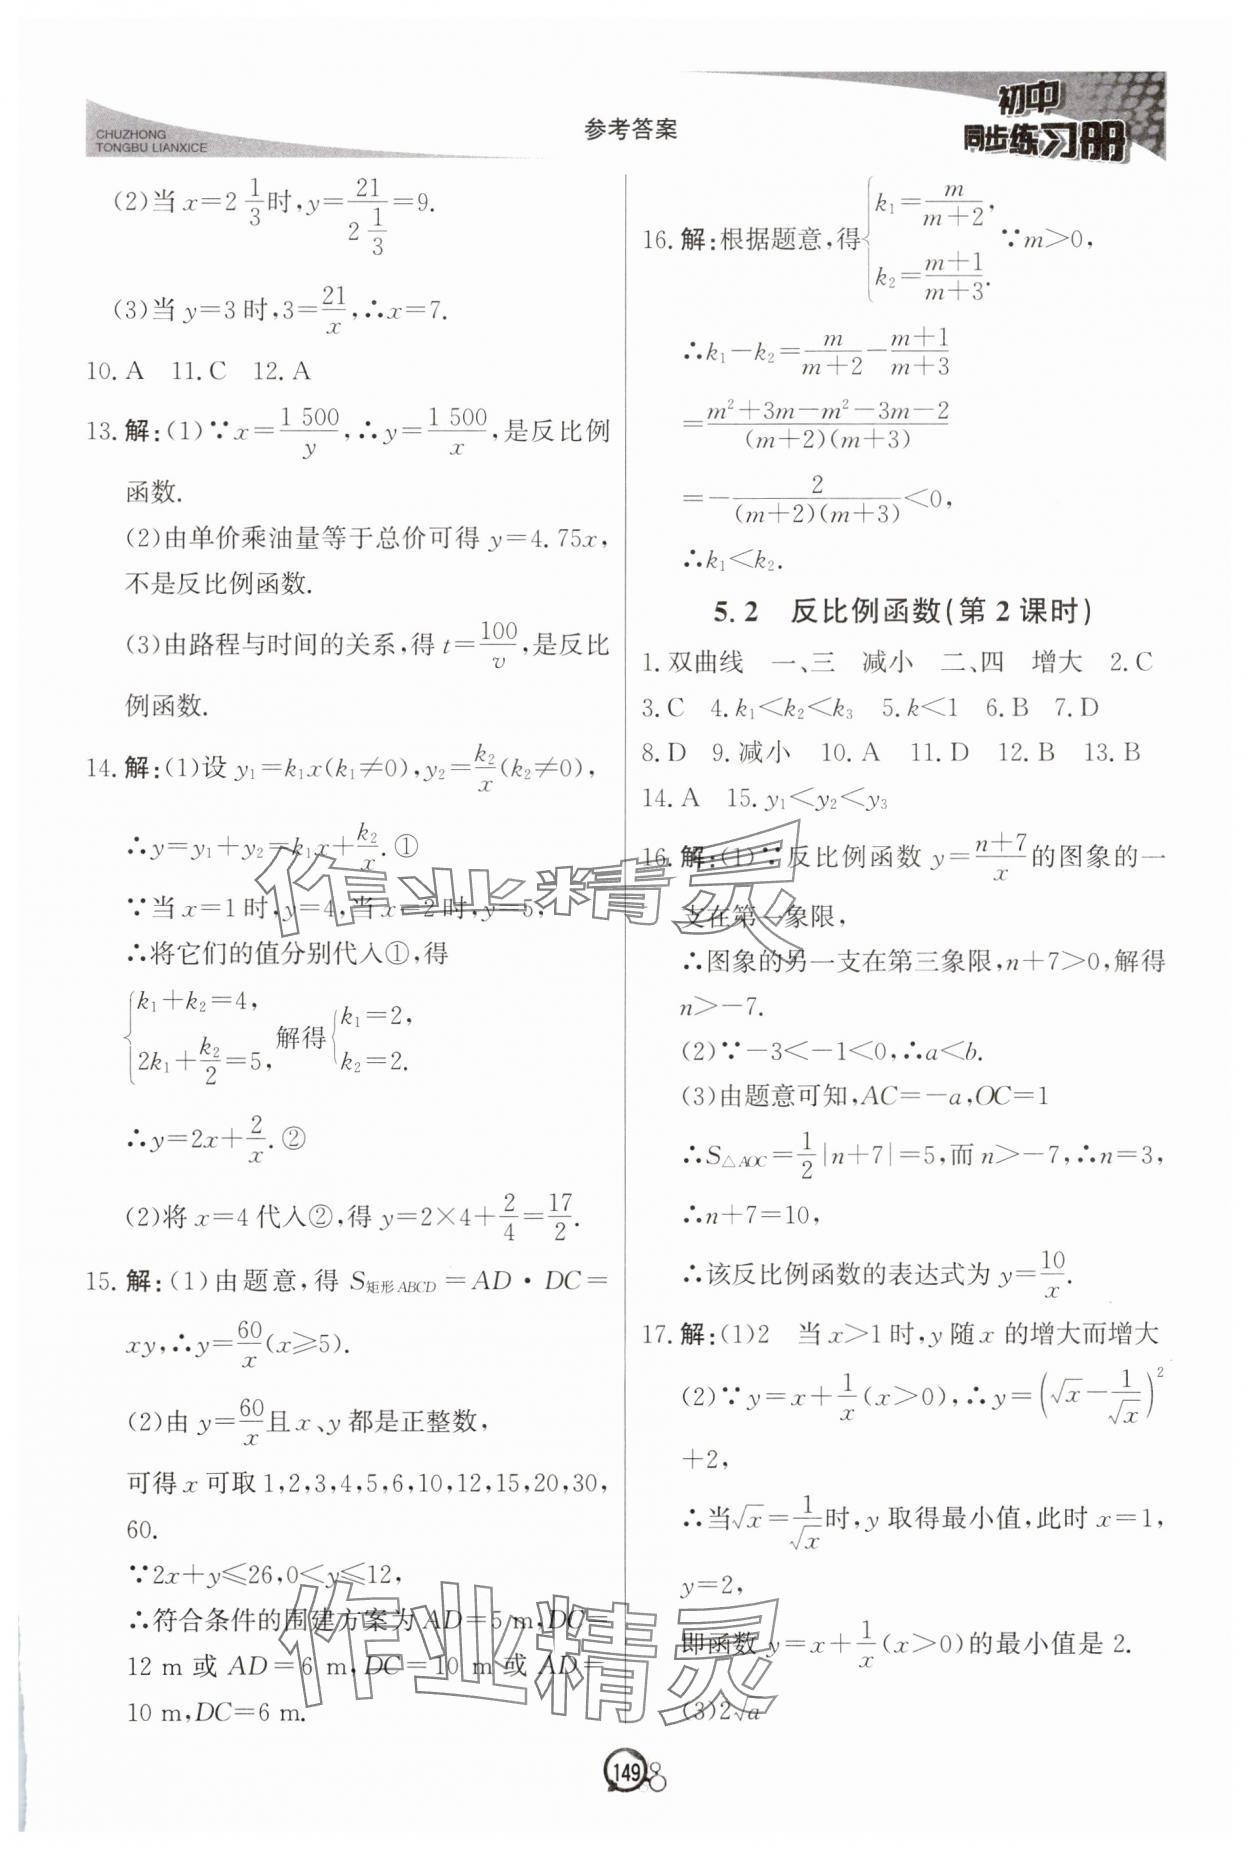 CHUZHONG
TONGBU LIANXICE
参考答案
初中
同步练习册
(2)当 x=2 1/3 时,y=21/(2 1/3)=9.
(3)当 y=3 时,3=21/x,∴x=7.
10. A  11. C  12. A
13. 解:(1)∵x=1 500/y,∴y=1 500/x,是反比例
函数.
(2)由单价乘油量等于总价可得 y=4.75x,
不是反比例函数.
(3)由路程与时间的关系,得 t=100/v,是反比
例函数.
14. 解:(1)设 y₁=k₁x(k₁≠0),y₂=k₂/x(k₂≠0),
∴y=y₁+y₂=k₁x+k₂/x.①
∵当 x=1 时,y=4,当 x=2 时,y=5,
∴将它们的值分别代入①,得
{k₁+k₂=4, 2k₁+k₂/2=5, 解得 {k₁=2, k₂=2.
∴y=2x+2/x.②
(2)将 x=4 代入②,得 y=2×4+2/4=17/2.
15. 解:(1)由题意,得 S矩形ABCD=AD·DC=
xy,∴y=60/x(x≥5).
(2)由 y=60/x 且 x、y 都是正整数,
可得 x 可取 1,2,3,4,5,6,10,12,15,20,30,
60.
∵2x+y≤26,0<y≤12,
∴符合条件的围建方案为 AD=5 m,DC=
12 m 或 AD=6 m,DC=10 m 或 AD=
10 m,DC=6 m.
16. 解:根据题意,得{k₁=m/(m+2), k₂=(m+1)/(m+3). ∵m>0,
∴k₁-k₂=m/(m+2)-(m+1)/(m+3)
=(m²+3m-m²-3m-2)/((m+2)(m+3))
=-2/((m+2)(m+3))<0,
∴k₁<k₂.
5.2 反比例函数(第 2 课时)
1. 双曲线  一、三  减小  二、四  增大  2. C
3. C  4. k₁<k₂<k₃  5. k<1  6. B  7. D
8. D  9. 减小  10. A  11. D  12. B  13. B
14. A  15. y₁<y₂<y₃
16. 解:(1)∵反比例函数 y=(n+7)/x 的图象的一
支在第一象限,
∴图象的另一支在第三象限,n+7>0,解得
n>-7.
(2)∵-3<-1<0,∴a<b.
(3)由题意可知,AC=-a,OC=1
∴S△AOC=1/2|n+7|=5,而 n>-7,∴n=3,
∴n+7=10,
∴该反比例函数的表达式为 y=10/x.
17. 解:(1)2  当 x>1 时,y 随 x 的增大而增大
(2)∵y=x+1/x(x>0),∴y=(√x-1/√x)²
+2,
∴当√x=1/√x时,y 取得最小值,此时 x=1,
y=2,
即函数 y=x+1/x(x>0)的最小值是 2.
(3)2√a
作业精灵
作业精灵
149